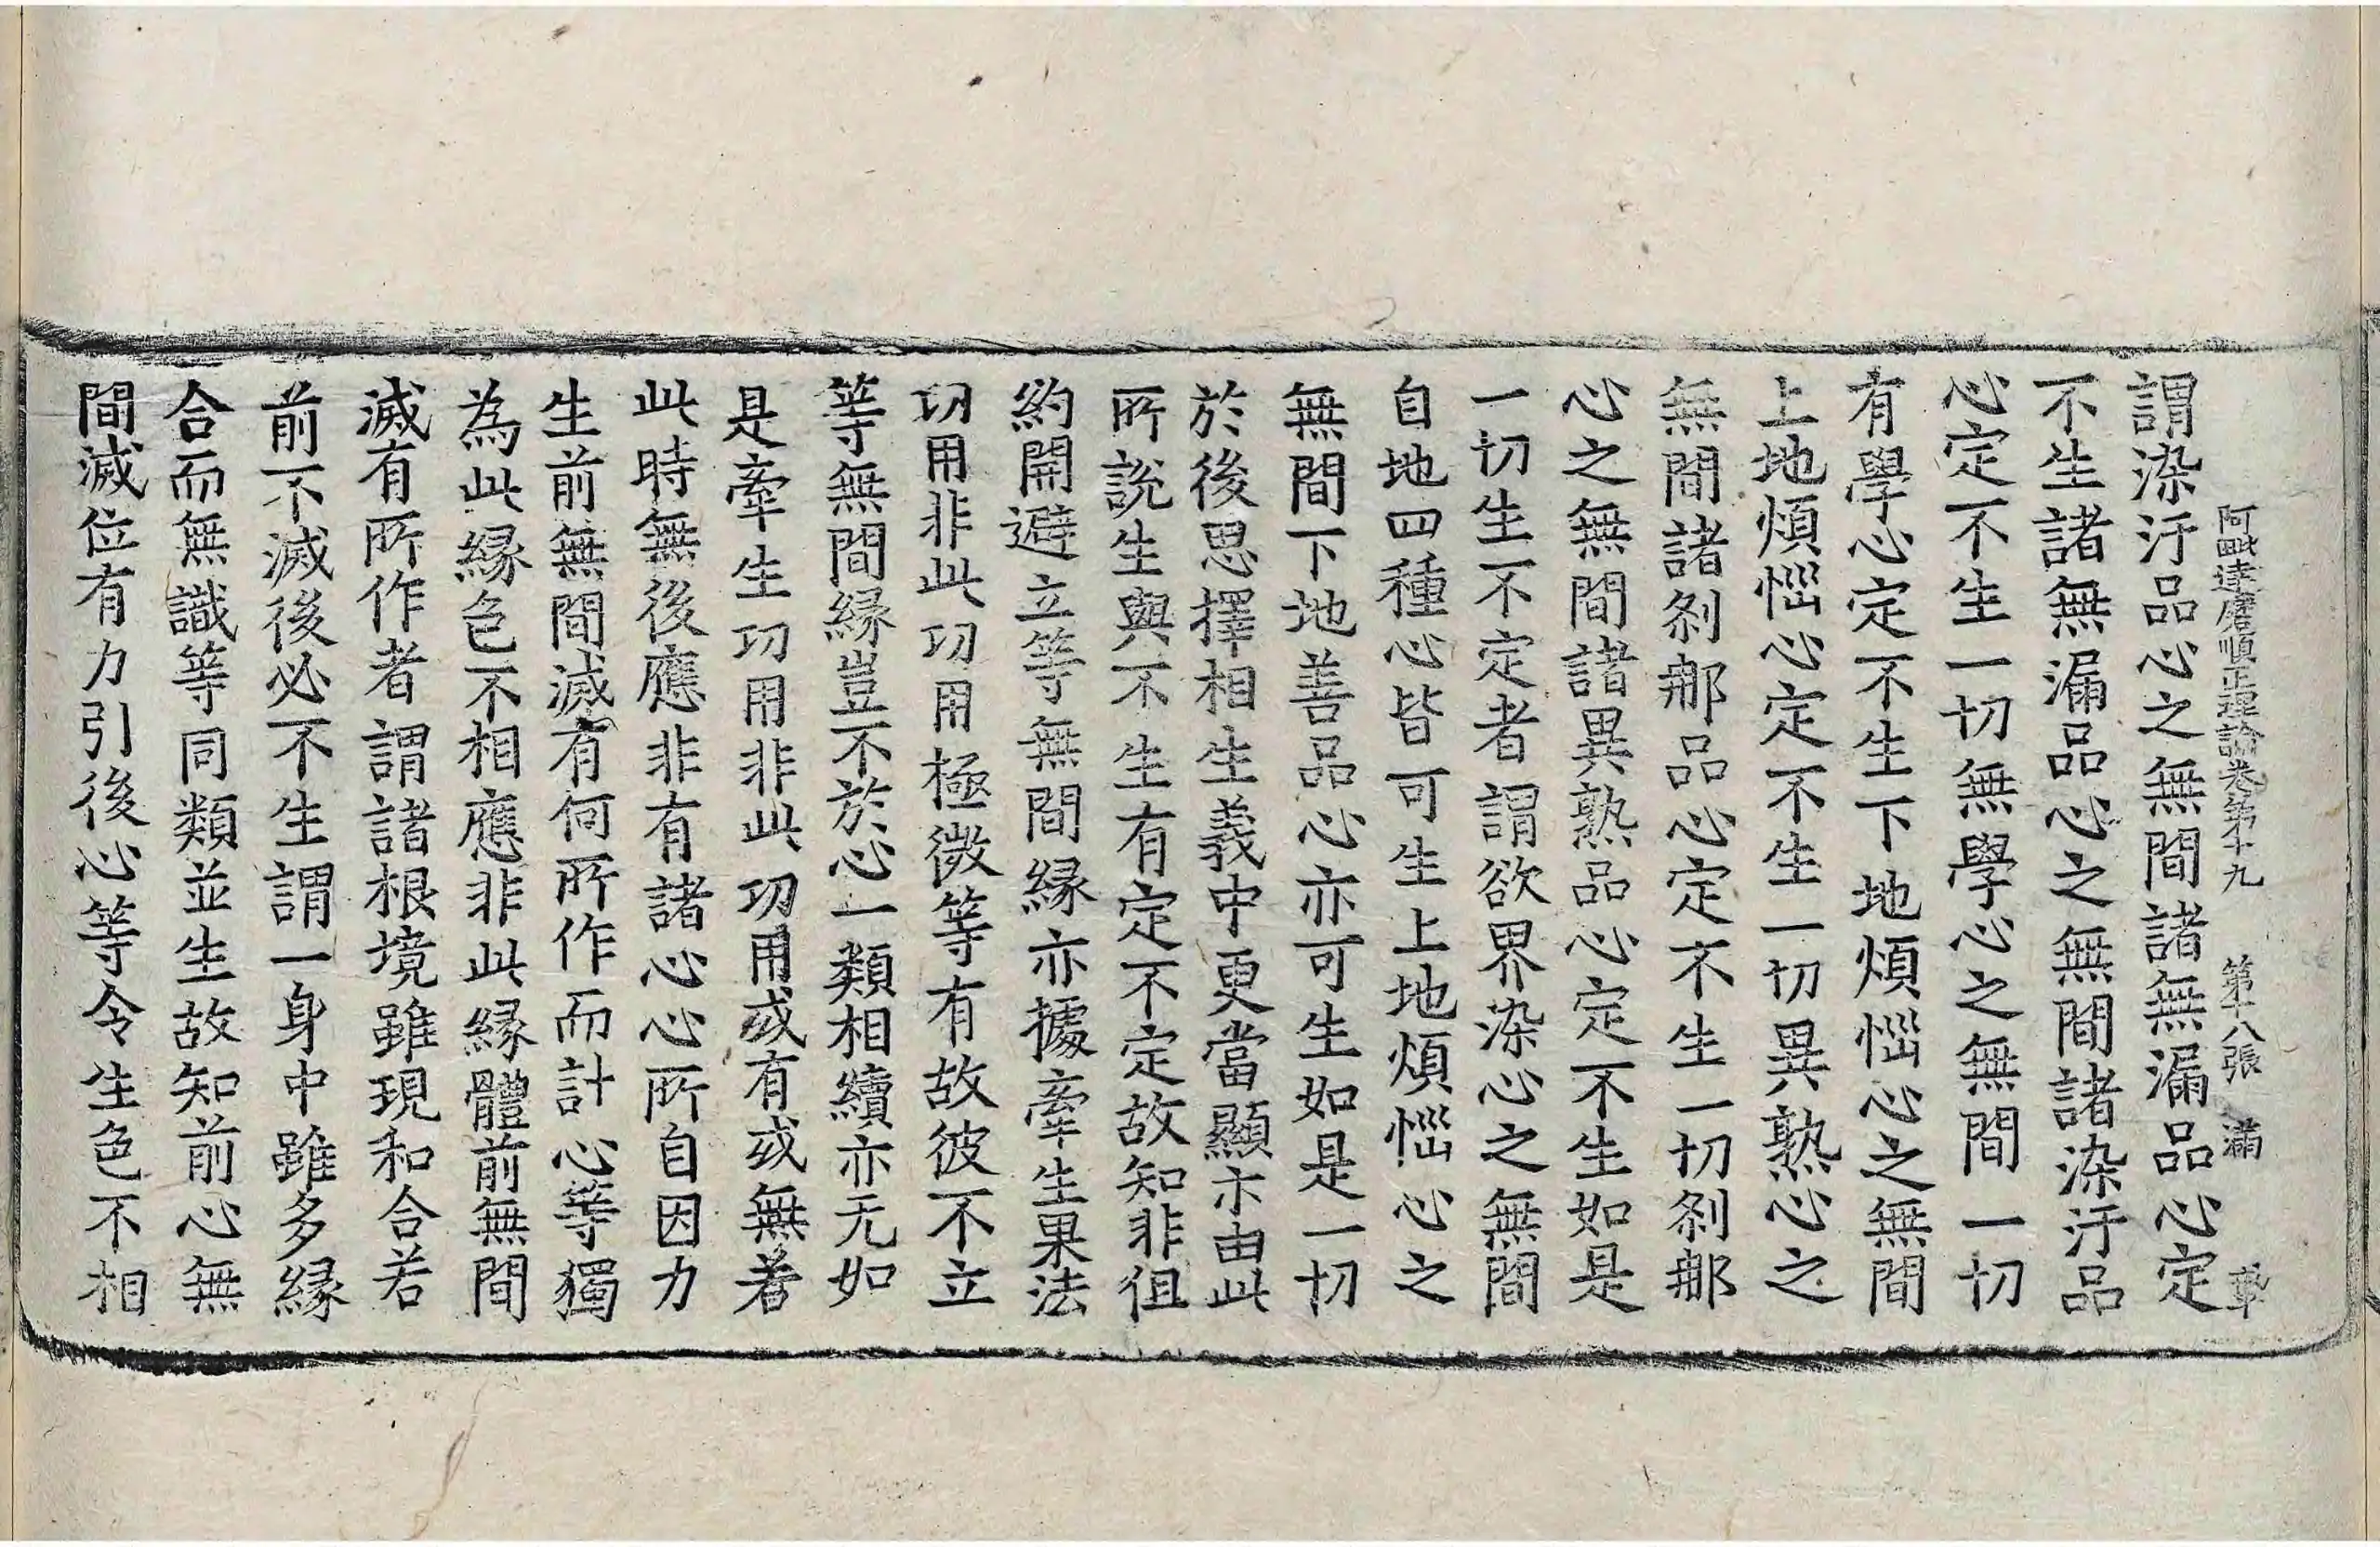 阿毗達磨順正理論卷第十九 第十八張 滿
謂染汙品心之無間諸無漏品心定
不生諸無漏品心之無間諸染汙品
心定不生一切無學心之無間一切
有學心定不生下地煩惱心之無間
上地煩惱心定不生一切異熟心之
無間諸剎那品心定不生一切剎那
心之無間諸異熟品心定不生如是
一切生不定者謂欲界染心之無間
自地四種心皆可生上地煩惱心之
無間下地善品心亦可生如是一切
於後思擇相生義中更當顯示由此
所說生與不生有定不定故知非但
約開避立等無間緣亦據牽生果法
功用非此功用極微等有故彼不立
等無間緣豈不於心一類相續亦无如
是牽生功用非此功用或有或無著
此時無後應非有諸心心所自因力
生前無間滅有何所作而計心等獨
為此緣色不相應非此緣體前無間
滅有所作者謂諸根境雖現和合若
前不滅後必不生謂一身中雖多緣
合而無識等同類並生故知前心無
間滅位有力引後心等令生色不相